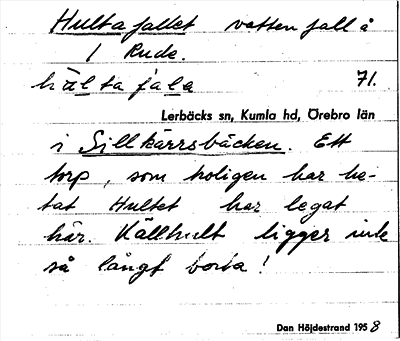 Hultafallet vattenfall å
1 Rude.
hältafala 71.
Lerbäcks sn, Kumla hd, Örebro län
i Sillkärrsbäcken. Ett
torp, som troligen har he-
tat Hultet har legat
här. Källhult ligger inte
så långt borta!
Dan Höjdestrand 1958